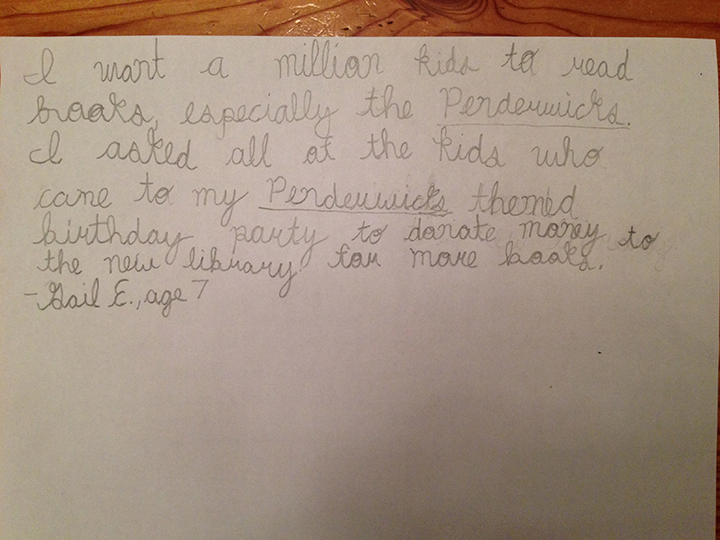 I want a million kids to read
books, especially the Penderwicks.
I asked all of the kids who
came to my Penderwicks themed
birthday party to donate money to
the new library for more books.
-Gail E., age 7